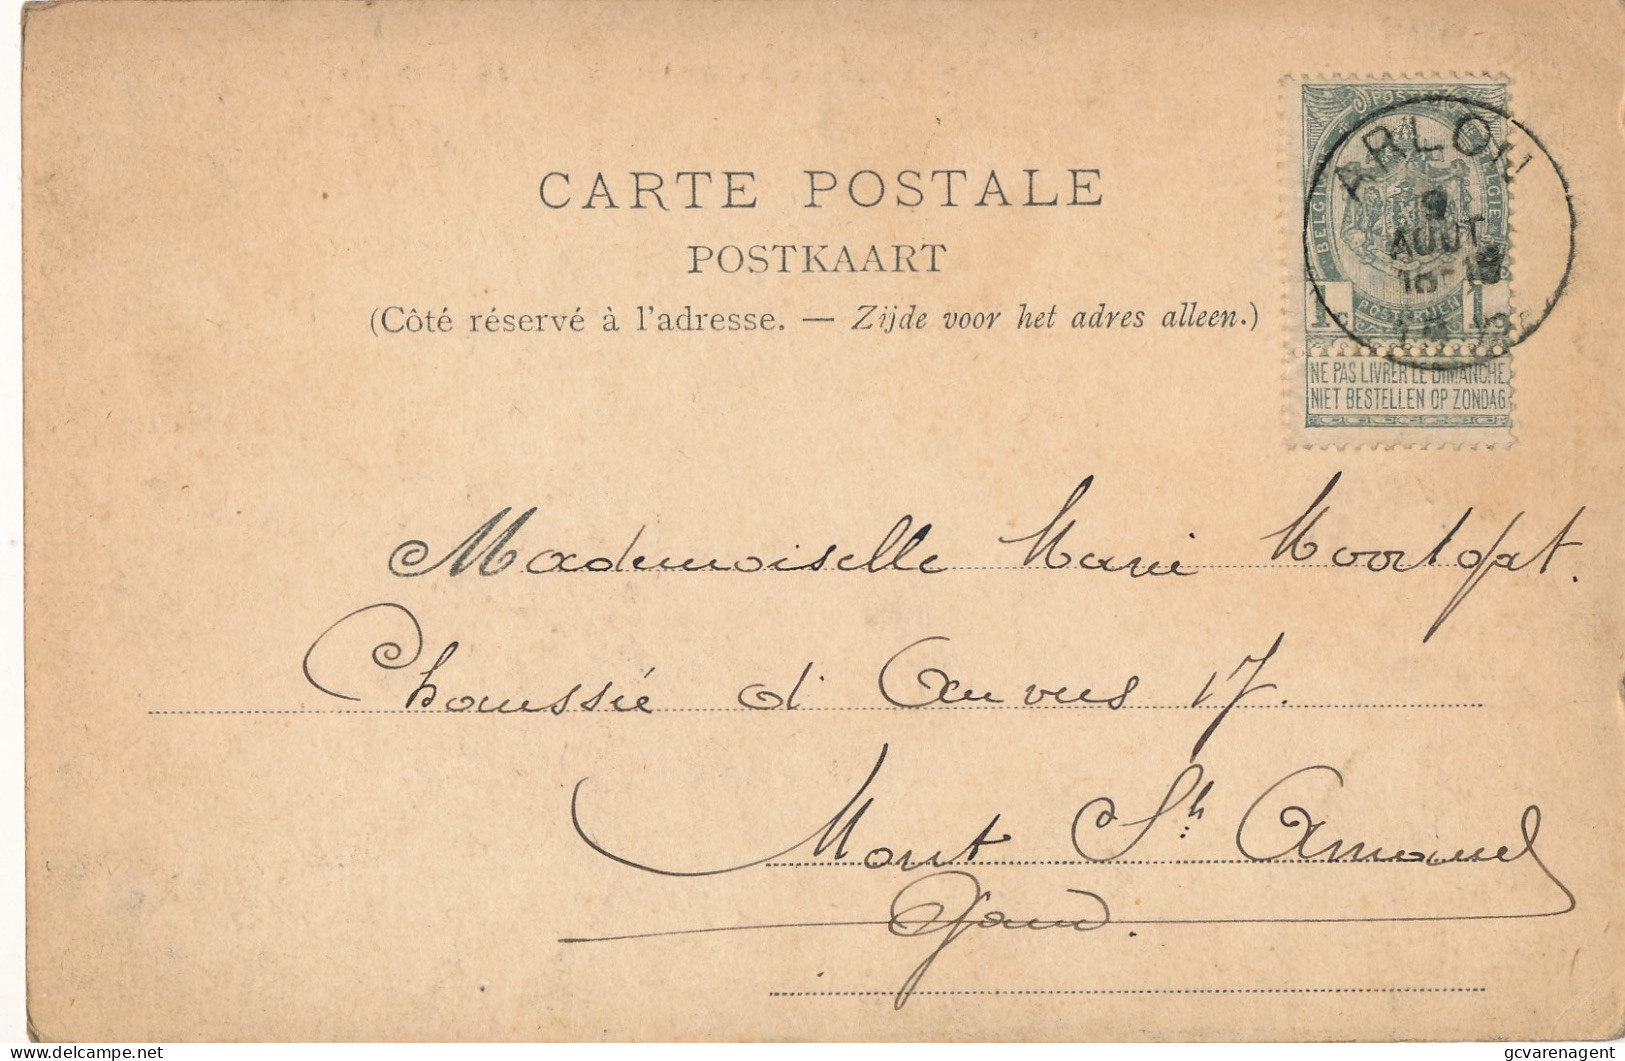 CARTE POSTALE
POSTKAART
(Côté réservé à l'adresse. — Zijde voor het adres alleen.)
POSTES
BELGIQUE BELGIE
ARLON
9
AOUT
POSTERIJEN
1c 1c
NE PAS LIVRER LE DIMANCHE
NIET BESTELLEN OP ZONDAG
Mademoiselle Marie Moortgat.
Chaussée d'Anvers 17.
Mont St. Amand
Gand.
delcampe.net
gcvarenagent